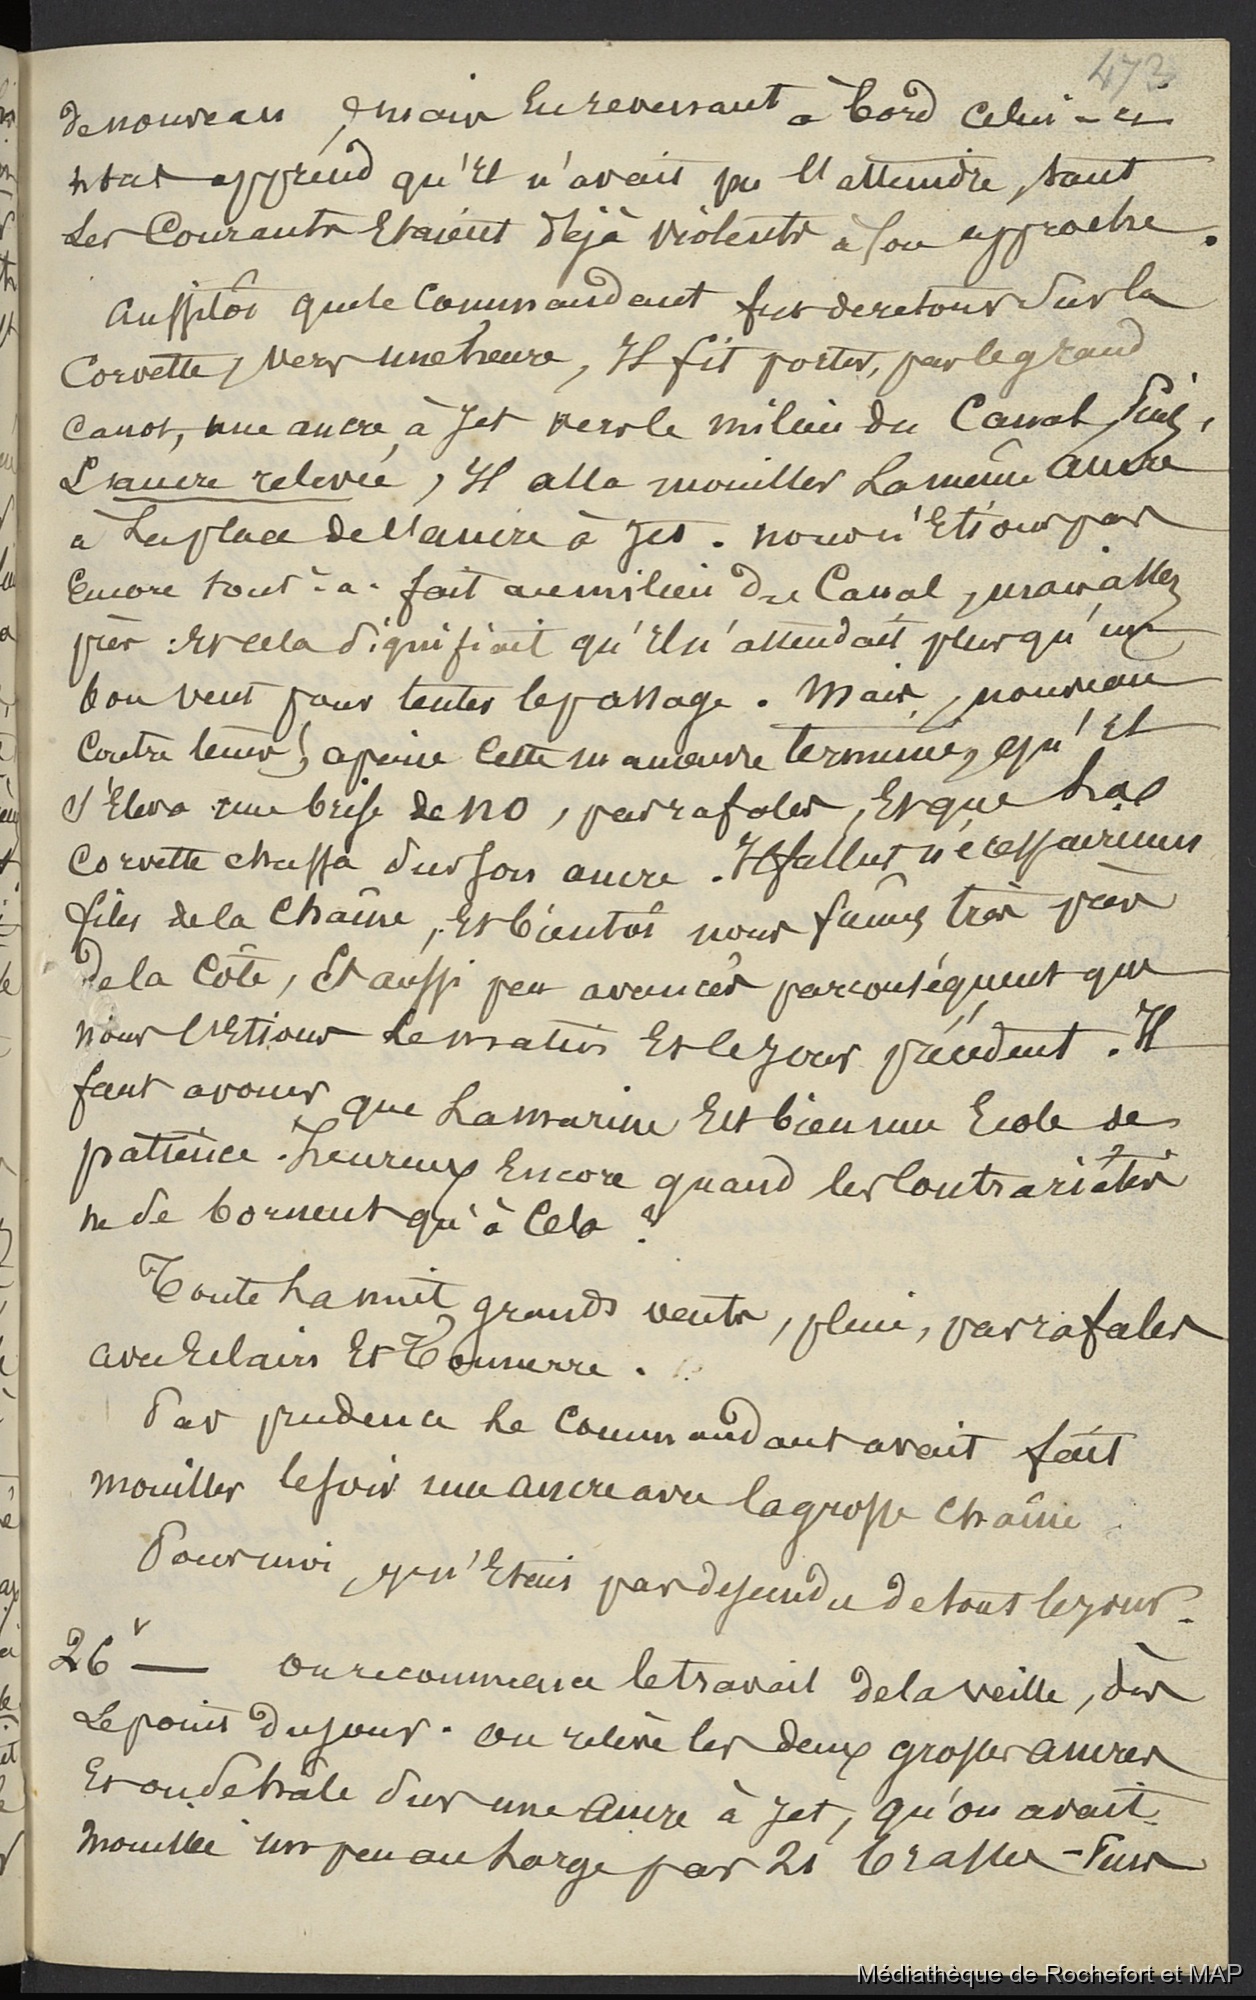 473
de nouveau, mais en revenant à bord celui-ci
nous apprend qu'il n'avait pu l'atteindre, tant
les courants étaient déjà violents à son approche.
Aussitôt que le commandant fut de retour sur la
corvette, vers une heure, il fit porter, par le grand
canot, une ancre à jet vers le milieu du canal, puis,
l'ancre relevée, il alla mouiller la même ancre
à la place de l'ancre à jet. nous n'étions pas
encore tout-à-fait au milieu du canal, mais assez
près : et cela signifiait qu'il n'attendait plus qu'un
bon vent pour tenter le passage. Mais, nouveau
contre temps, à peine cette manœuvre terminée, qu'il
s'éleva une brise de no, par rafales, et que la
corvette chassa sur son ancre. Il fallut nécessairement
filer de la chaîne, et bientôt nous fûmes très près
de la côte, et aussi peu avancés par conséquent que
nous l'étions le matin et le jour précédent. Il
faut avouer que la marine est bien une école de
patience. heureux encore quand les contrariétés
ne se bornent qu'à cela ?
Toute la nuit grands vents, pluie, par rafales
avec éclairs et tonnerre.
Par prudence le commandant avait fait
mouiller le soir une ancre avec la grosse chaîne
Pour moi, je n'étais pas descendu de tout le jour.
26 — on recommence le travail de la veille, dès
le point du jour. on relève les deux grosses ancres
et on se hâle sur une ancre à jet, qu'on avait
mouillée un peu au large par 21 brasses - Puis
Médiathèque de Rochefort et MAP